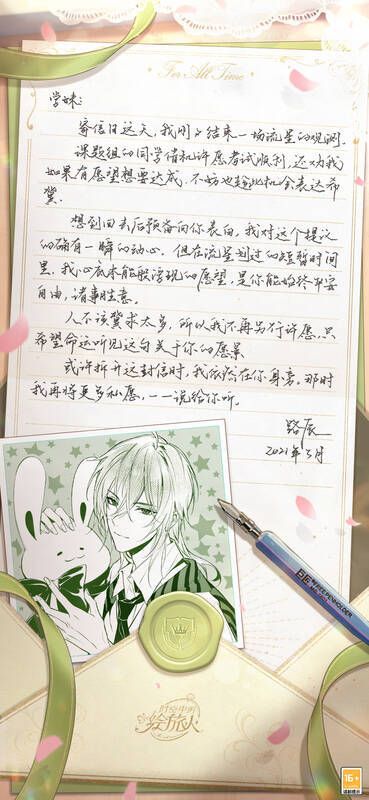 For All Time
学妹:
寄信日这天，我刚刚结束一场流星的观测。
课题组的同学借机许愿考试顺利，还劝我
如果有愿望想要达成，不妨也趁此机会表达希
冀。
想到回去后预备向你表白，我对这个提议
的确有一瞬的动心。但在流星划过的短暂时间
里，我心底本能般浮现的愿望，是你能始终平安
自由，诸事胜意。
人不该冀求太多，所以我不再另行许愿，只
希望命运听见这句关于你的愿景
或许拆开这封信时，我依然在你身旁。那时
我再将更多私愿，一一说给你听。
路辰
2021年5月
时空中的
绘旅人
16+